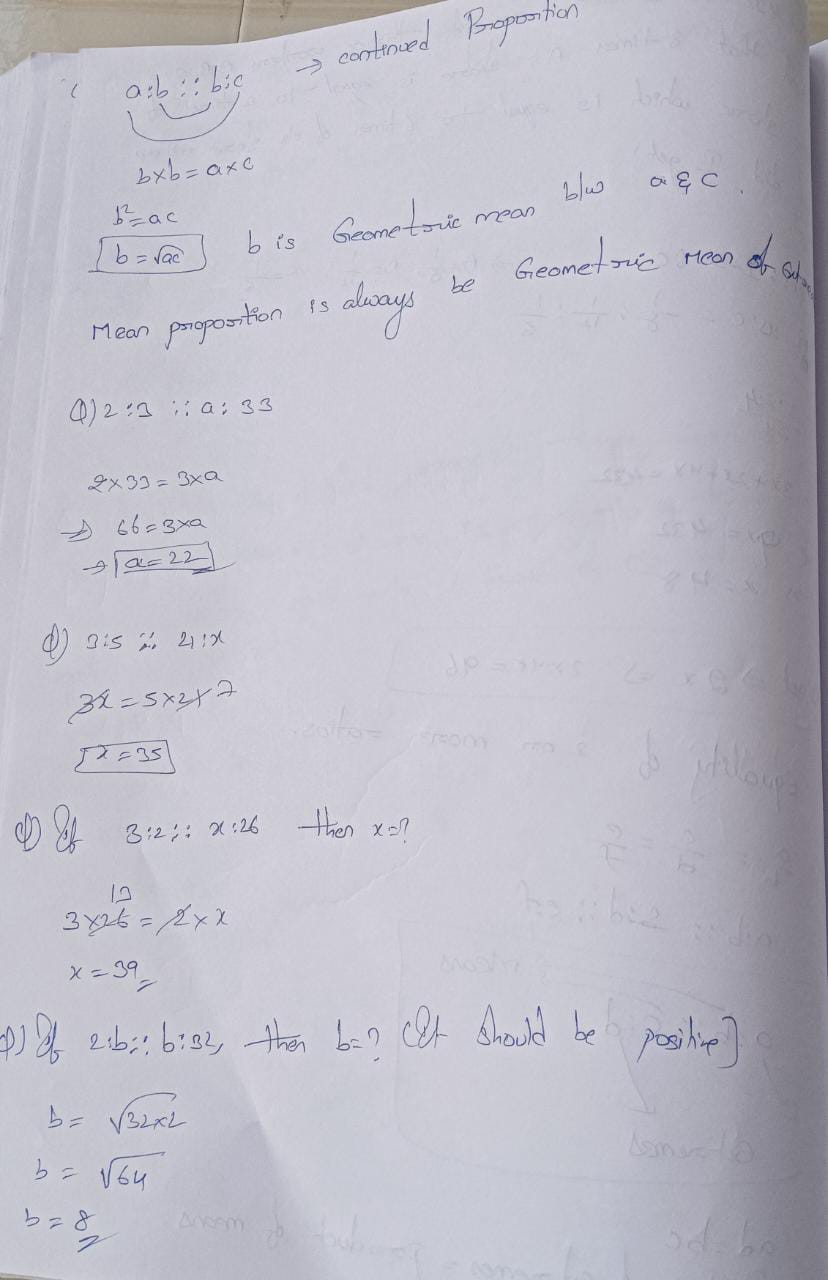 a:b :: b:c → continued Proportion
b×b = a×c
b² = ac
b = √ac b is Geometric mean b/w a & c.
Mean proportion is always be Geometric Mean of
Q) 2:3 :: a:33
2×33 = 3×a
⇒ 66 = 3×a
→ a = 22
Q) 3:5 :: 21:x
3x = 5×21 7
x = 35
Q) If 3:2 :: x:26 then x=?
13
3×26 = 2×x
x = 39
Q) If 2:b :: b:32, then b=? (It should be positive]
b = √32×2
b = √64
b = 8